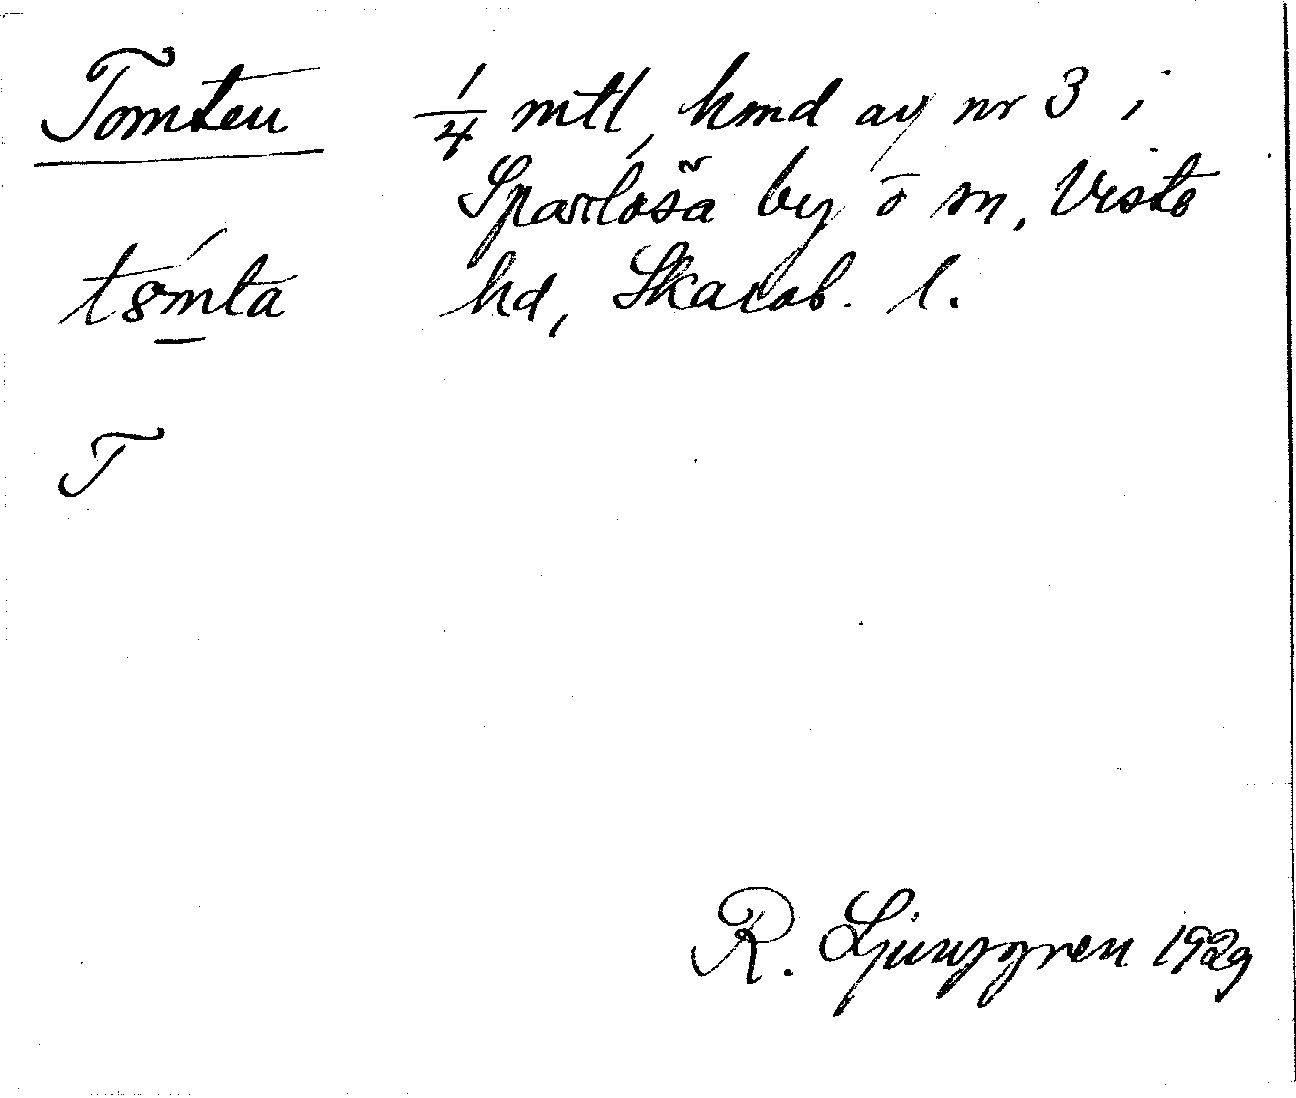 Tomten 1/4 mtl, hmd av nr 3 i
Sparlösa by o sn, Viste
tómta hd, Skarab. l.
T
R. Ljunggren 1929